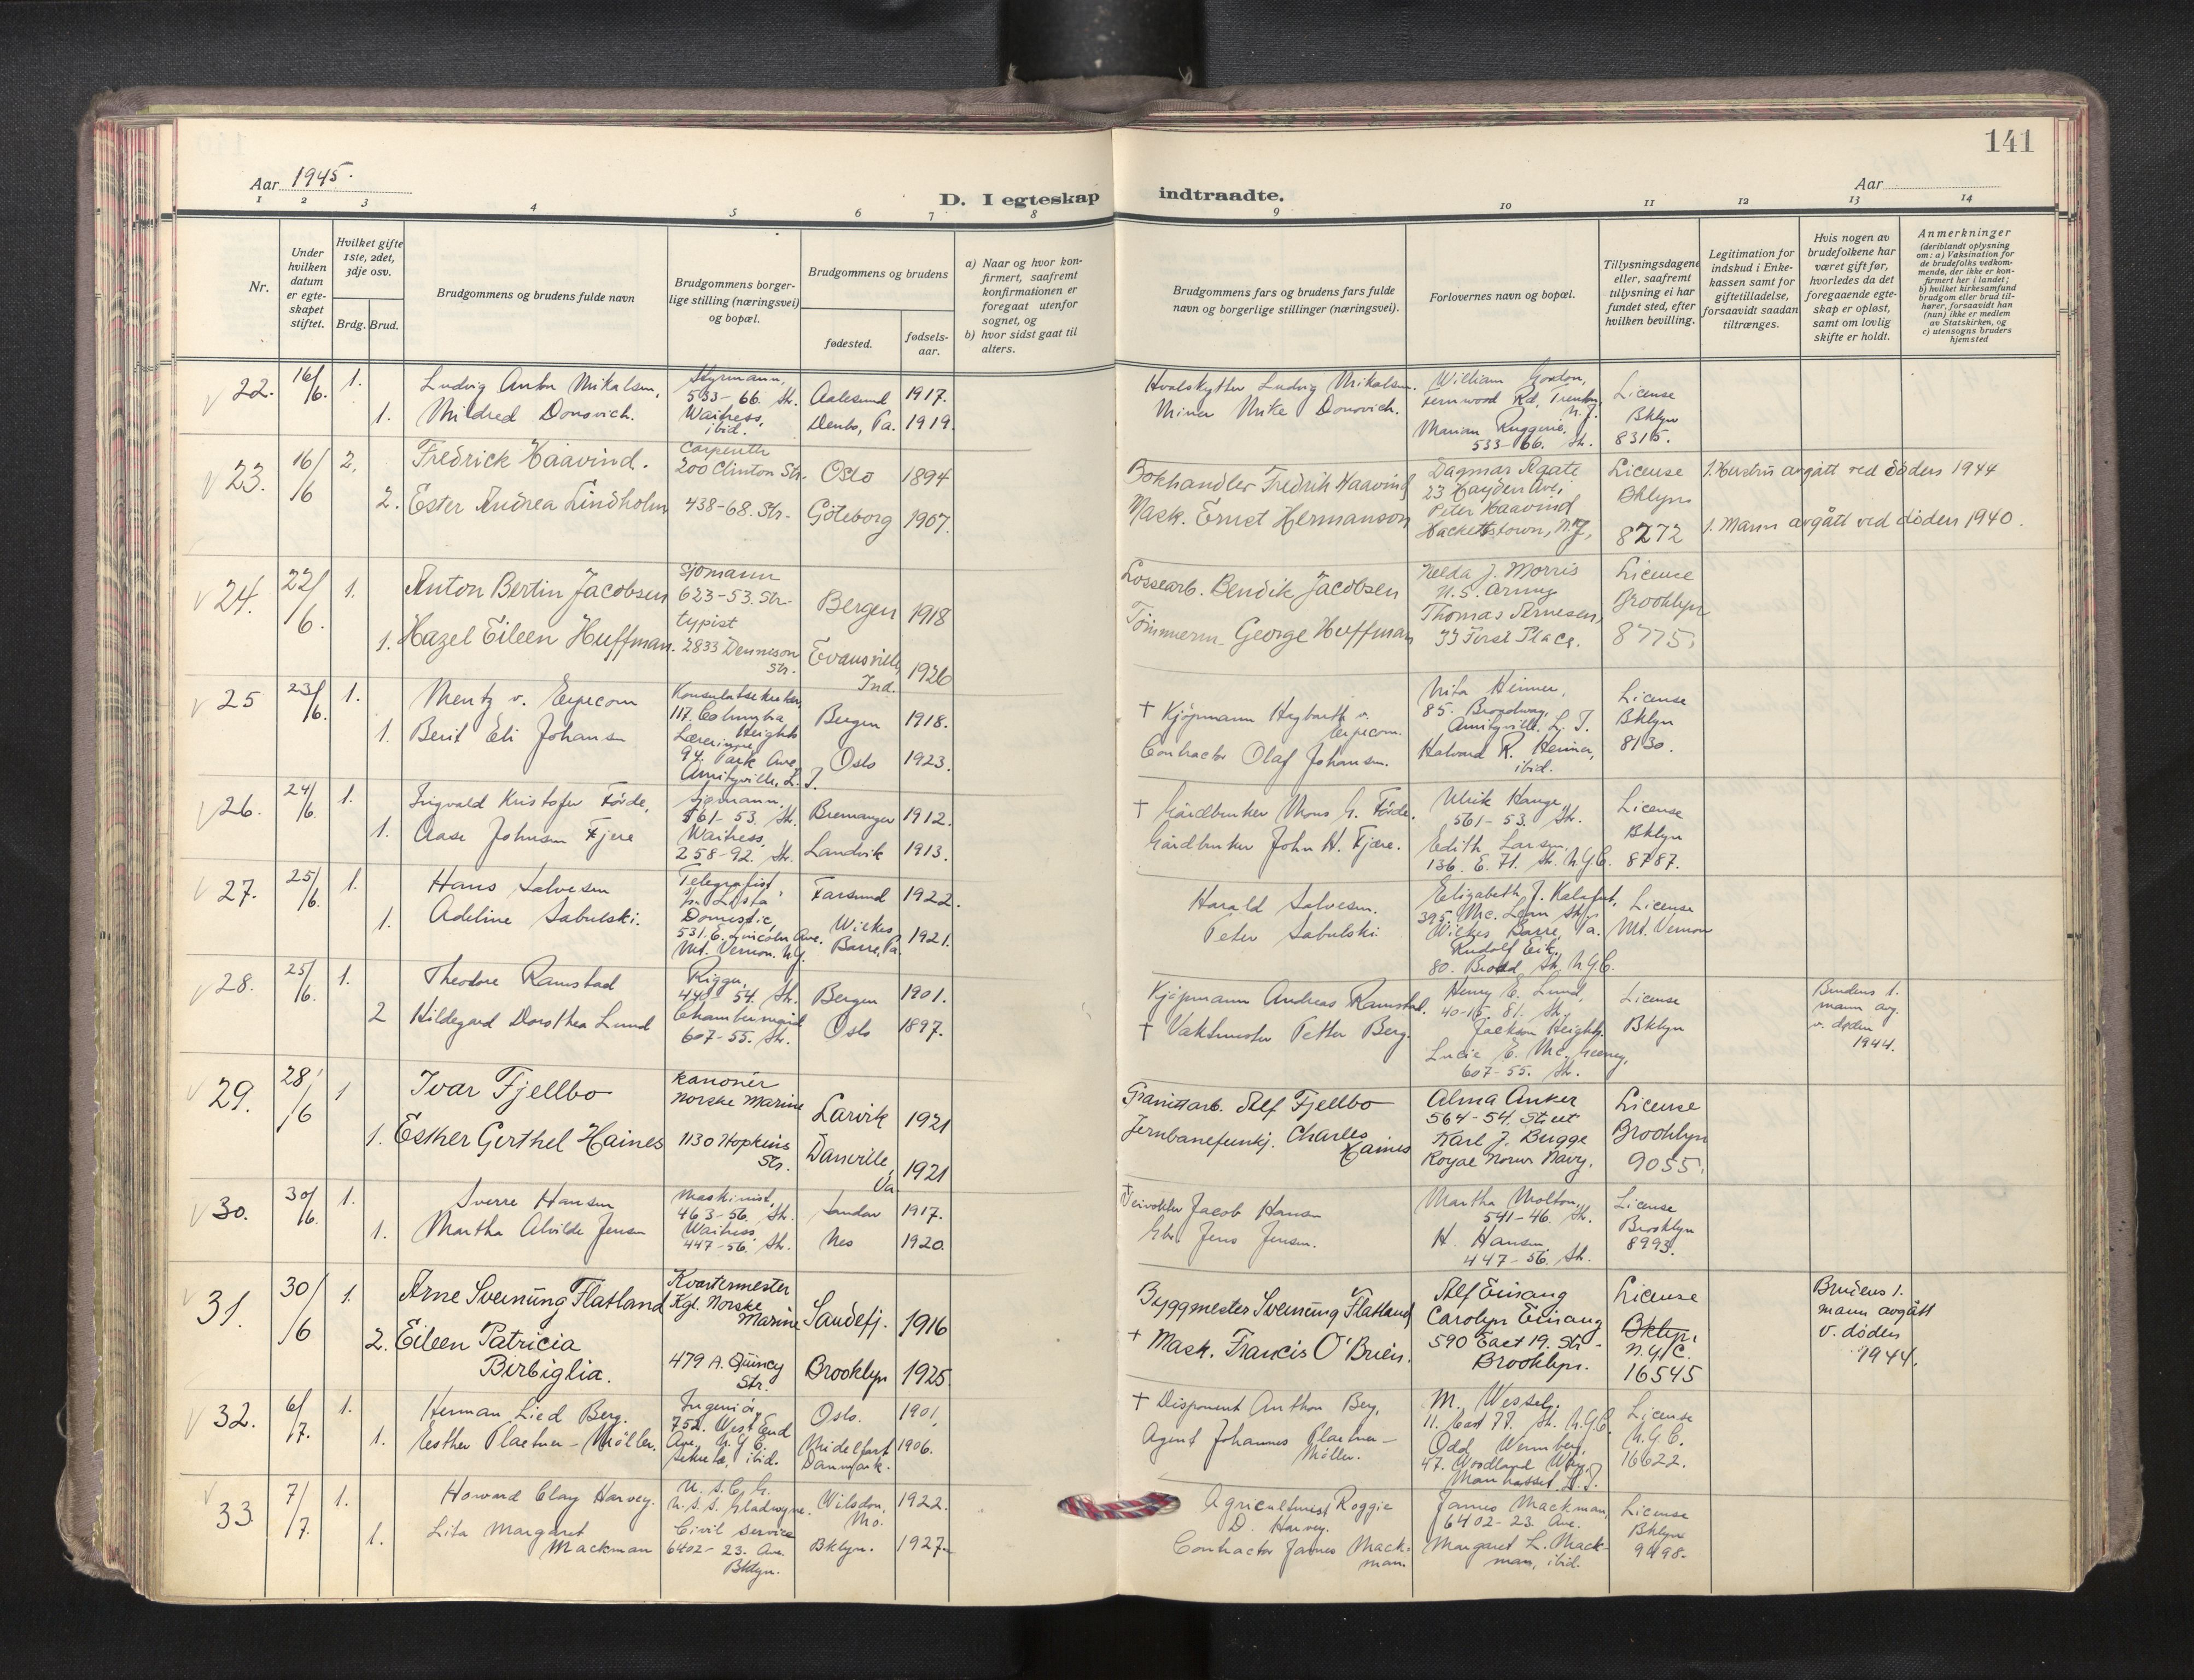 141
Aar 1945.
D. I egteskap indtraadte.
Aar
1 2 3 4 5 6 7 8 9 10 11 12 13 14
Nr.
Under hvilken datum er egteskapet stiftet.
Hvilket gifte 1ste, 2det, 3dje osv.
Brdg. Brud.
Brudgommens og brudens fulde navn
Brudgommens borgerlige stilling (næringsvei) og bopæl.
Brudgommens og brudens
fødested.
fødselsaar.
a) Naar og hvor konfirmert, saafremt konfirmationen er foregaat utenfor sognet, og
b) hvor sidst gaat til alters.
Brudgommens fars og brudens fars fulde navn og borgerlige stillinger (næringsvei).
Forlovernes navn og bopæl.
Tillysningsdagene eller, saafremt tillysning ei har fundet sted, efter hvilken bevilling.
Legitimation for indskud i Enkekassen samt for giftetilladelse, forsaavidt saadan tiltrænges.
Hvis nogen av brudefolkene har været gift før, hvorledes da det foregaaende egteskap er opløst, samt om lovlig skifte er holdt.
Anmerkninger
(deriblandt oplysning om: a) Vaksination for de brudefolks vedkommende, der ikke er konfirmert her i landet; b) hvilket kirkesamfund brudgom eller brud tilhører, forsaavidt han (hun) ikke er medlem av Statskirken, og c) utensogns bruders hjemsted
22. 16/6. 1. Ludvig Anton Mikalsen, Styrmann, 533-66. Str. Aalesund 1917.
1. Mildred Donovich. Waitress, ibid. Denbo, Pa. 1919.
Hvalskytter Ludvig Mikalsen.
Miner Mike Donovich.
William Gordon,
Fernwood Rd, Trenton, N.J.
Marian Ruggerie.
533-66. Str.
License
Bklyn
8315.
23. 16/6 2. Fredrick Haavind. Carpenter 200 Clinton Str. Oslo 1894
2. Ester Andrea Lindholm 438-68. Str. Göteborg 1907.
Bokhandler Fredrik Haavind
Mask. Ernst Hermanson
Dagmar Agate
23 Hayden Ave,
Peter Haavind
Hackettstown, N.J,
License
Bklyn
8272
1. Hustru avgått ved döden 1944
1. Mann avgått ved döden 1940.
24. 22/6. 1. Anton Bertin Jacobsen Sjømann 623-53. Str. Bergen 1918
1. Hazel Eileen Huffman. typist 2833 Denneson Str. Evansville, Ind. 1926
Lossearb. Bendik Jacobsen
Tömmerm. George Huffman
Nelda J. Morris
U.S. Army
Thomas Arnesen,
33 First Place.
License
Brooklyn
8775.
25 23/6. 1. Mentz v. Erpecom Konsulatsekretær, 117. Columbia Heights Bergen 1918.
1. Berit Eli Johansen Lærerinne, 94. Park Ave, Amityville, L. I. Oslo 1923.
† Kjöpmann Hagbarth v. Erpecom.
Contractor Olaf Johansen.
85. Broadway,
Amityville. L. I.
Halvard R. Heimer,
ibid.
License
Bklyn
8130.
26. 24/6. 1. Ingvald Kristofer Förde, Sjømann, 561-53. Str. Bremanger 1912.
1. Aase Johnsen Fjere Waitress, 258-92. Str. Landvik 1913.
† Gårdbruker Mons G. Förde.
Gårdbruker John H. Fjære.
Ulrik Hauge,
561-53. Str.
Edith Larsen,
136. E. 71. Str. N.Y.C.
License
Bklyn
8787.
27. 25/6. 1. Hans Salvesen Telegrafist, Farsund 1922.
1. Adeline Sabulski. Domestic, 531. E. Lincoln Ave. Mt. Vernon. N.Y. Wilkes Barre, Pa. 1921.
Harald Salvesen.
Peter Sabulski.
Elizabeth J. Kalafut,
395. Mc. Lean Str.,
Wilkes Barre, Pa.
Rudolf Eik,
80. Broad Str. N.Y.C.
License
Mt. Vernon
28. 25/6. 1. Theodore Ramstad Rigger, 440-54. Str. Bergen 1901.
2 Hildegard Dorothea Lund Chambermaid 607-55. Str. Oslo 1897.
Kjøpmann Andreas Ramstad.
† Vaktmester Petter Berg.
Henry E. Lund,
40-15. 81. Str.
Jackson Heights.
607-55. Str.
License
Bklyn
Brudens 1. mann avg. v. døden 1944.
29. 28/6 1 Ivar Fjellbo Kanonér Norske Marine Larvik 1921
1. Esther Gerthel Haines 1130 Hopkins Str. Danville, Va. 1921
Granittarb. Alf Fjellbo
Jernbanefunkj. Charles Haines
Alma Anker
564-54. Street
Karl J. Bugge
Royal Norw Navy.
License
Brooklyn
9055.
30. 30/6. 1. Sverre Hansen Maskinist, 463-56. Str. Sandar 1917.
1. Martha Alvilde Jensen Waitress, 447-56. Str. Nes 1920.
Jacob Hansen
Gbr Jens Jensen.
Martha Molton,
541-46. Str.
H. Hansen
447-56. Str.
License
Brooklyn
8993.
31. 30/6 1. Arne Sveinung Flatland Kvartermester Kgl. Norske Marine Sandefj. 1916
2. Eileen Patricia Birbiglia. 479 A. Quincy Str. Brooklyn 1925
Byggmester Sveinung Flatland
† Mask. Francis O'Brien.
Alf Einang
Carolyn Einang
590 East 19. Str -
Brooklyn.
License
Bklyn.
N.Y.C.
16545
Brudens 1. mann avgått v. døden 1944.
32. 6/7. 1. Herman Lied Berg. Ingeniör, 752. West End Ave. N.Y.C. Oslo. 1901.
1. Esther Plaetner-Möller. Sekretær, ibid. Midelfart Danmark. 1906.
† Disponent Anthon Berg,
Agent Johannes Plaetner-Möller.
M. Wessel.
11. East 77. Str. N.Y.C.
Odd Wermberg,
47. Woodland Way,
Manhasset L. I.
License
N.Y.C.
16622.
33 7/7. 1. Howard Clay Harvey. U.S.C.G. U.S.S. Gladwyne. Wilsdon, Mo. 1922.
1. Lita Margaret Mackman Civil Service 6402-23. Ave. Bklyn. Bklyn. 1927.
Agriculturist Roggie D. Harvey.
Contractor James Mackman.
James Mackman,
6402-23. Ave.
Margaret L. Mackman, ibid.
License
Bklyn
9498.